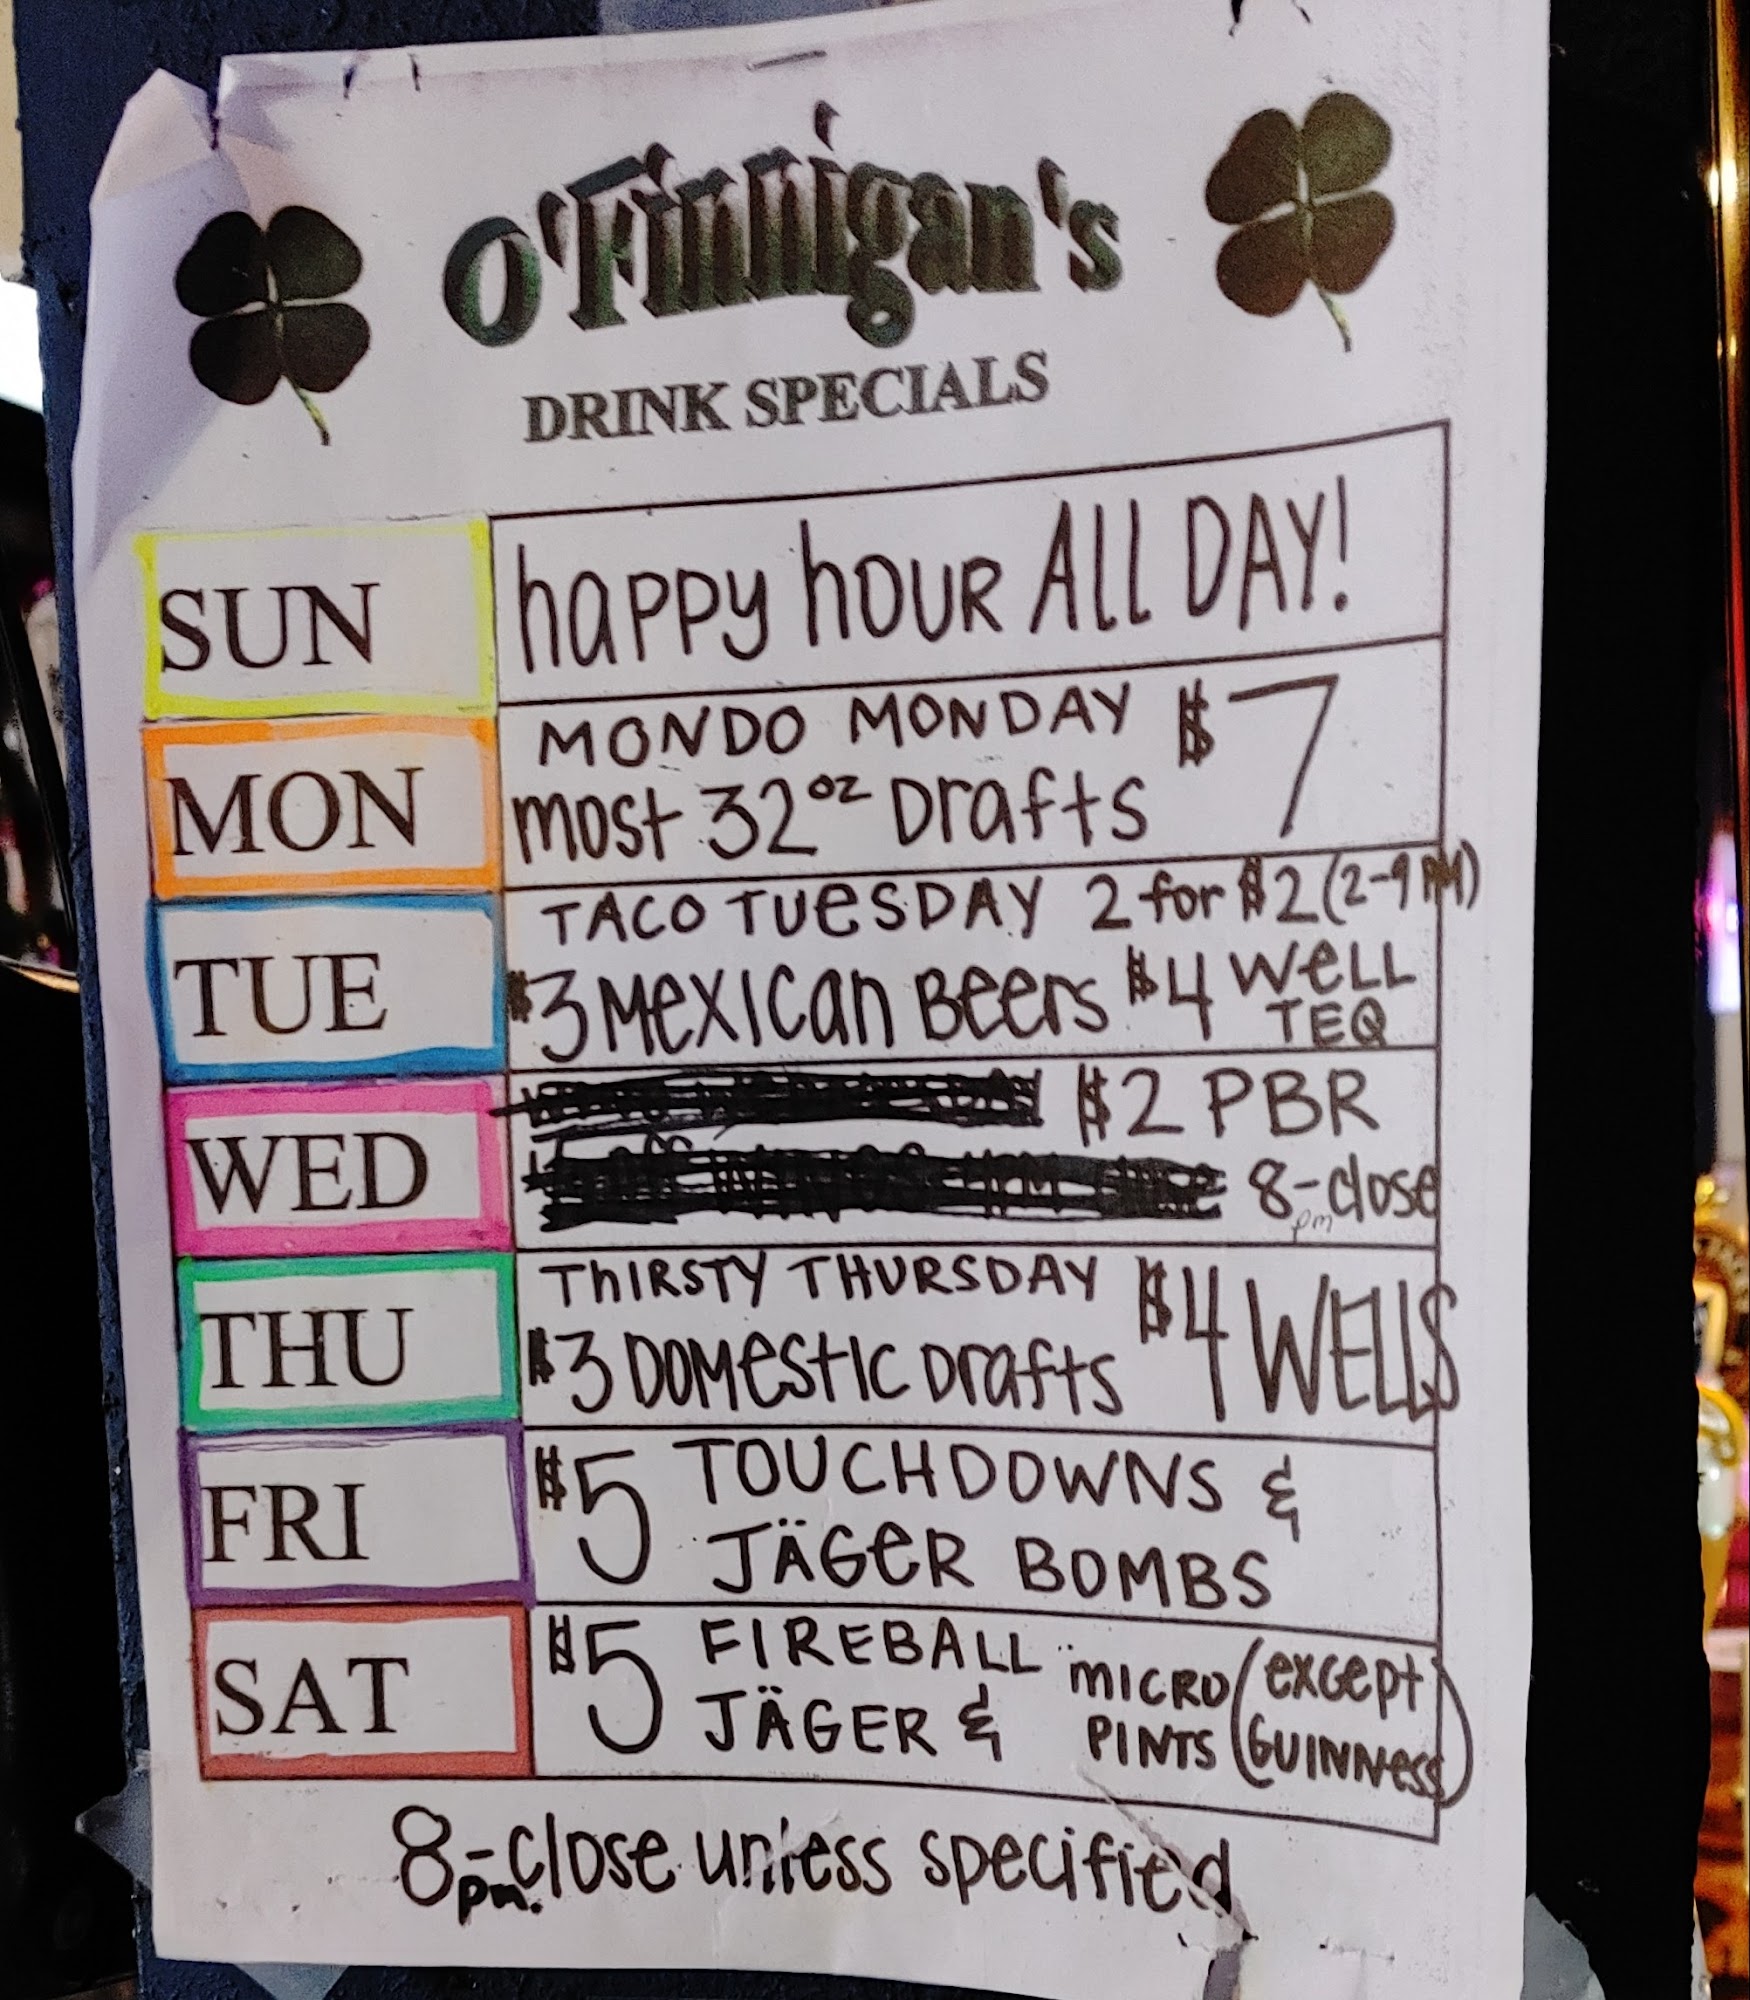 O'Finnigan's
DRINK SPECIALS
SUN
happy hour All DAY!
MON
MONDO MONDAY $7
most 32oz Drafts
TUE
TACO TUESDAY 2 for $2 (2-9 PM)
$3 Mexican Beers $4 Well
TEQ
WED
$2 PBR
8pm-close
THU
THIRSTY THURSDAY $4 WELLS
$3 DOMESTIC Drafts
FRI
$5 TOUCHDOWNS &
JÄGER BOMBS
SAT
$5 FIREBALL MICRO (except
JÄGER & PINTS Guinness)
8pm.-close unless specified